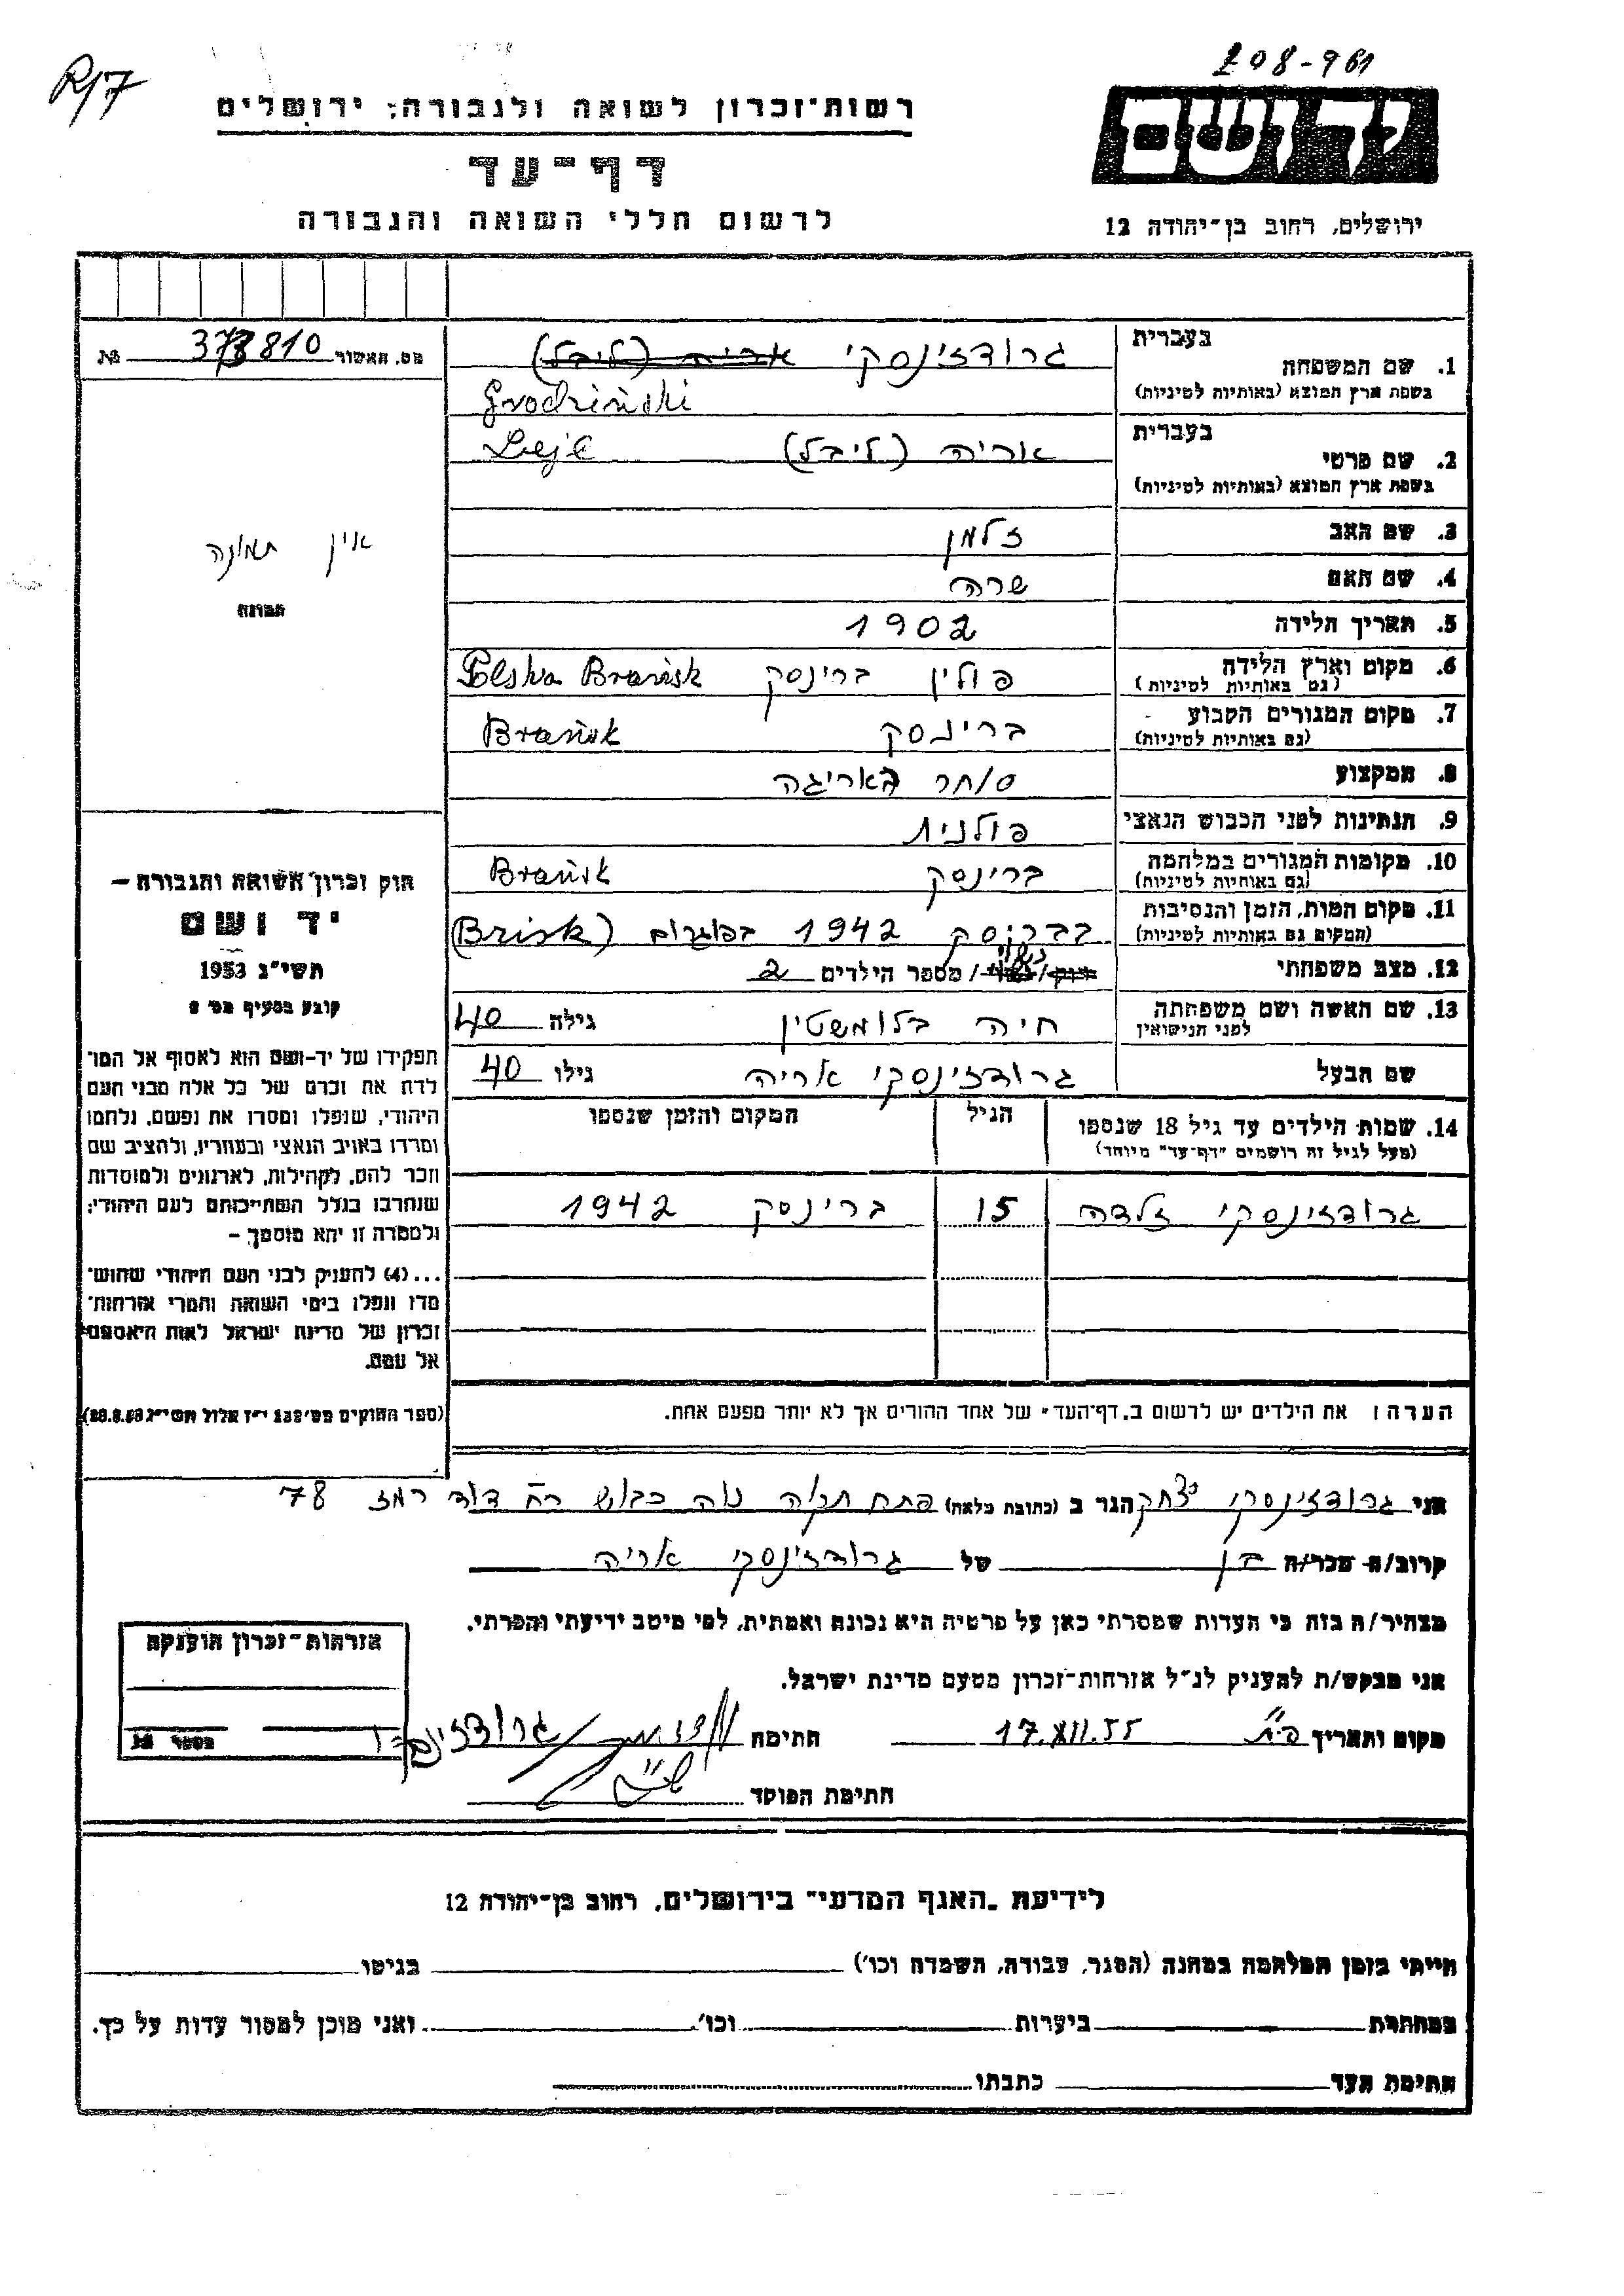 208-961
R17
רשות-זכרון לשואה ולגבורה; ירושלים
יד ושם
דף-עד
לרשום חללי השואה והגבורה
ירושלים, רחוב בן-יהודה 12
בעברית
1. שם המשפחה גרודזינסקי אריה (ליבל)
בשפת ארץ המוצא (באותיות לטיניות) Grodziński
מס. האשור 373810 №
בעברית
2. שם פרטי אריה (ליבל) Lejb
בשפת ארץ המוצא (באותיות לטיניות)
3. שם האב זלמן
אין תמונה
4. שם האם שרה
תמונה
5. תאריך הלידה 1902
6. מקום וארץ הלידה פולין ברינסק Polska Brańsk
(גם באותיות לטיניות)
7. מקום המגורים הקבוע ברינסק Brańsk
(גם באותיות לטיניות)
8. המקצוע סוחר באריגה
9. הנתינות לפני הכבוש הנאצי פולנית
10. מקומות המגורים במלחמה ברינסק Brańsk
(גם באותיות לטיניות)
11. מקום המות, הזמן והנסיבות 1942 בפוגרום (Brisk)
(המקום גם באותיות לטיניות)
12. מצב משפחתי נשוי / מספר הילדים 2
13. שם האשה ושם משפחתה חיה בלומשטין גילה 40
לפני הנישואין
שם הבעל גרודזינסקי אריה גילו 40
14. שמות הילדים עד גיל 18 שנספו הגיל המקום והזמן שנספו
(מעל לגיל זה רושמים "דף-עד" מיוחד)
גרודזינסקי זלדה 15 ברינסק 1942
חוק זכרון השואה והגבורה –
יד ושם
תשי"ג 1953
קובע בסעיף מס' 2
תפקידו של יד-ושם הוא לאסוף אל המו-
לדת את זכרם של כל אלה מבני העם
היהודי, שנפלו ומסרו את נפשם, נלחמו
ומרדו באויב הנאצי ובעוזריו, ולהציב שם
וזכר להם, לקהילות, לארגונים ולמוסדות
שנחרבו בגלל השתייכותם לעם היהודי;
ולמטרה זו יהא מוסמך –
...(4) להעניק לבני העם היהודי שהוש-
מדו ונפלו בימי השואה והמרי אזרחות-
זכרון של מדינת ישראל לאות היאספם
אל עמם.
(ספר החוקים מס' 132 י"ז אלול תשי"ג 28.8.53)
הערה: את הילדים יש לרשום ב"דף-העד" של אחד ההורים אך לא יותר מפעם אחת.
אני גרודזינסקי יצחק הגר ב (כתובת מלאה) פתח תקוה נוה כבוש רח' דוד רמז 78
קרוב/ה מכר/ה בן של גרודזינסקי אריה
מצהיר/ה בזה כי העדות שמסרתי כאן על פרטיה היא נכונה ואמתית, לפי מיטב ידיעתי והכרתי.
אני מבקש/ת להעניק לנ"ל אזרחות-זכרון מטעם מדינת ישראל.
מקום ותאריך פ"ת 17.XII.55 חתימה גרודזינסקי
חתימת הפוקד
אזרחות-זכרון הוענקה
מספר
לידיעת "האגף המדעי" בירושלים, רחוב בן-יהודה 12
הייתי בזמן המלחמה במחנה (הסגר, עבודה, השמדה וכו') בגיטו
במחתרת ביערות וכו' ואני מוכן למסור עדות על כך.
חתימת העד כתבתו